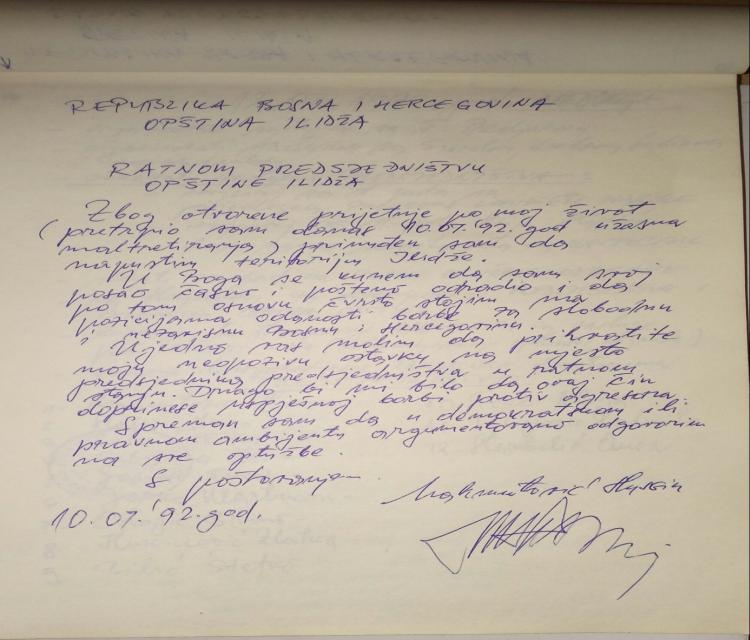 REPUBLIKA BOSNA I HERCEGOVINA
OPŠTINA ILIDŽA
RATNOM PREDSJEDNIŠTVU
OPŠTINE ILIDŽA
Zbog otvorene prijetnje po moj život
(pretrpio sam danas 10.07.'92.god užasna
maltretiranja) primuđen sam da
napustim teritoriju Ilidže.
U Boga se kunem da sam svoj
posao časno i pošteno odradio i da
po tom osnovu čvrsto stojim na
pozicijama odanosti borbe za slobodnu
i nezavisnu Bosnu i Hercegovinu.
Ujedno vas molim da prihvatite
moju neopozivu ostavku na mjesto
predsjednika predsjedništva u ratnom
stanju. Drago bi mi bilo da ovaj čin
doprinese uspješnoj borbi protiv agresora.
Spreman sam da u demokratskom ili
pravnom ambijentu argumentovano odgovorim
na sve optužbe.
S poštovanjem
Mahmutović Husein
10.07.'92.god.